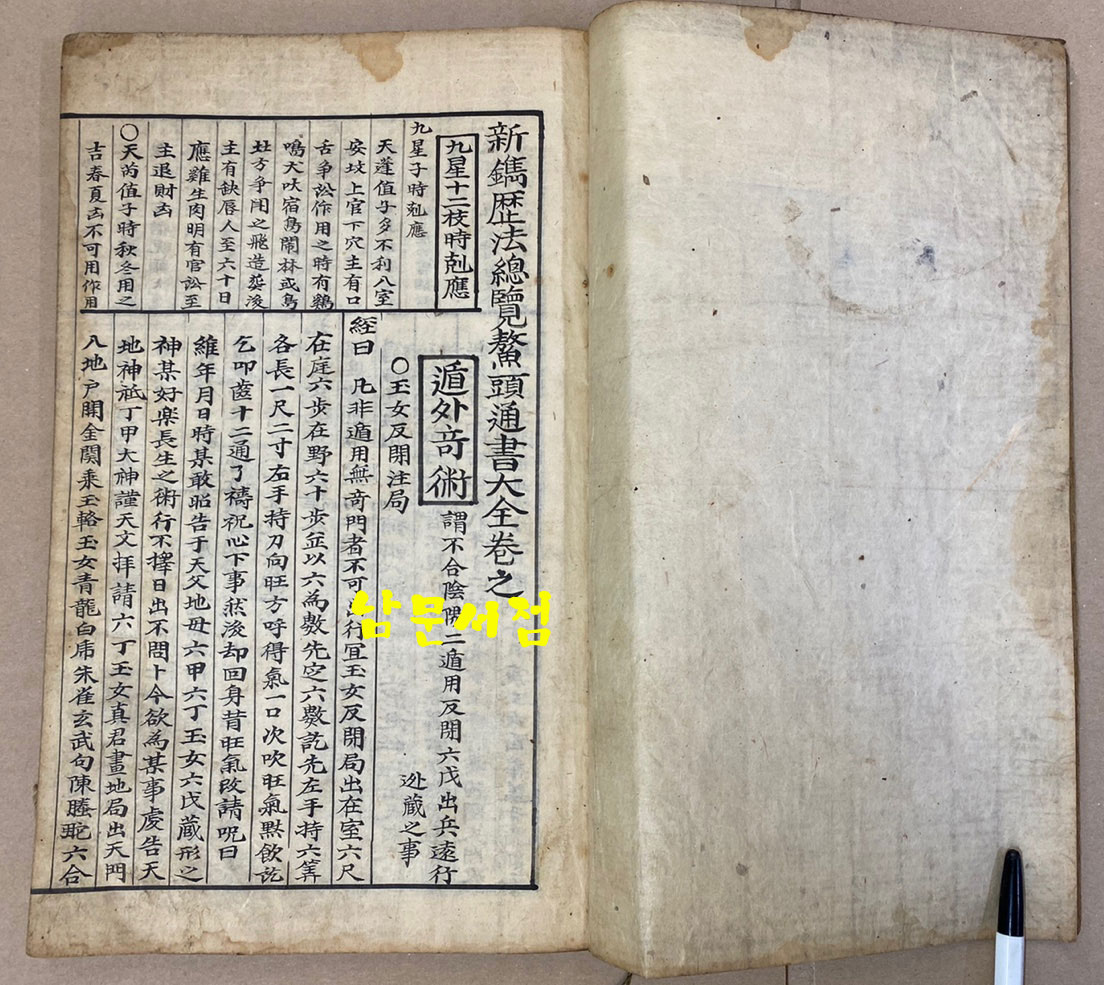 新鐫歴法總覽鰲頭通書大全卷之
九星十二枝時尅應
九星子時尅應
天蓬值子多不利入室
安坟上官下穴主有口
舌争訟作用之時有鷄
鳴犬吠宿鳥鬧林或鳥
北方争闹之飛造葬後
主有缺唇人至六十日
應雞生肉明有官訟至
主退財凶
〇天芮值子時秋冬用之
吉春夏凶不可用作用
遁外竒術
謂不合陰陽二遁用反閉六戊出兵遠行
逃蔵之事
〇玉女反閉注局
經曰 凡非遁用無竒門者不可出行宜玉女反閉局出在室六尺
在庭六步在野六十步並以六為數先定六數訖先左手持六筭
各長一尺二寸右手持刀向旺方呼得氣一口次吹旺氣黙飲訖
乞叩齒十二通了禱祝心下事然後却回身背旺氣改請呪曰
維年月日時某敢昭告于天父地毋六甲六丁玉女六戊蔵形之
神某好楽長生之術行不擇日出不問卜今欲為某事虔告天
地神祇丁甲大神謹天文拝請六丁玉女真君畫地局出天門
入地戶開全関乗玉輅玉女青龍白虎朱雀玄武勾陳螣虵六合
남문서점